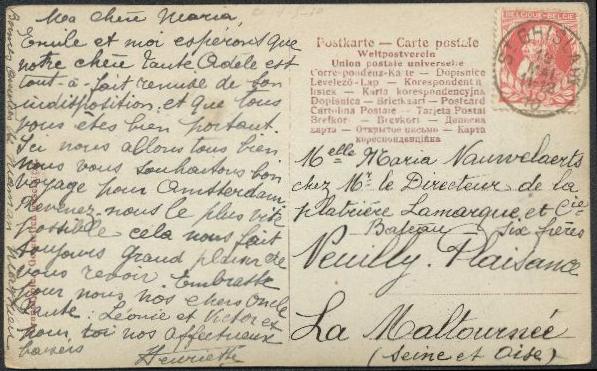 Ma chère Maria,
Emile et moi espérons que
notre chère Tante Adèle est
tout-à-fait remise de son
indisposition, et que tous
vous êtes bien portant.
Ici nous allons tous bien
nous vous souhaitons bon
voyage pour Amsterdam.
Revenez-nous le plus vite
possible cela nous fait
toujours grand plaisir de
vous revoir. Embrasse
pour nous nos chers Oncle
Tante: Léonie et Victor et
pour toi nos affectueux
baisers
Henriette
Postkarte — Carte postale
Weltpostverein
Union postale universelle
Correspondenz-Karte — Dopisnice
Levelező-Lap — Korespondent
listek — Karta korespondencyjna
Dopisnica — Briefkaart — Postcard
Cartolina Postale — Tarjeta Postal
Brefkort — Brevkort — Дописна
карта — Открытое письмо — Карта
кореспонденційна
BELGIQUE BELGIË
ST GHISLAIN
Melle Maria Nauwelaerts
chez Mr. le Directeur de la
platrière Lamarque, et Cie
Bateau Six frères
Neuilly. Plaisance
La Maltournée
(Seine et Oise)